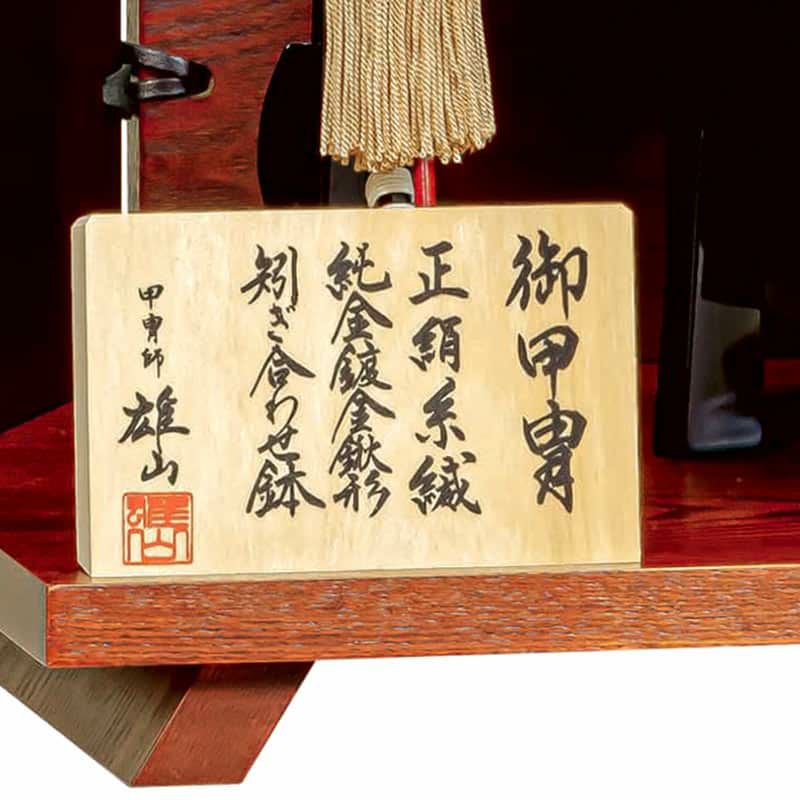 御甲冑
正絹糸縅
純金鍍金鍬形
矧ぎ合わせ鉢
甲冑師 雄山
雄山